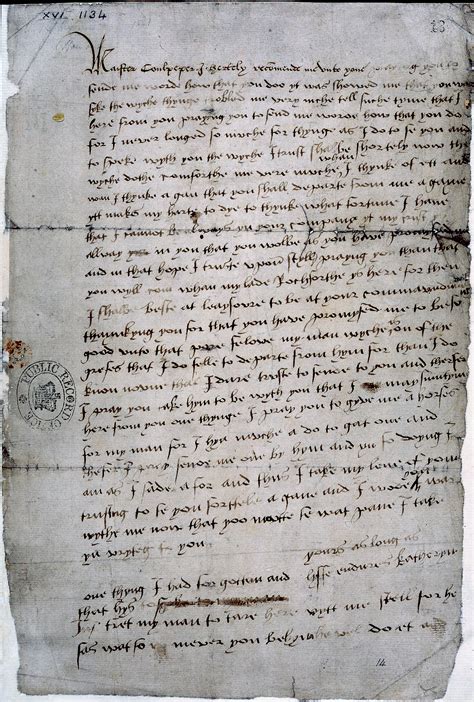 XVI. 1134
13
Maister Coulpeper I hertely recomende me unto youe praying you to
sende me worde how that you doo yt was showed me that you was
seke the wyche thynge trobled me very muche tell suche tyme that I
here from you praying you to send me worde how that you do
for I never longed so muche for thynge as I do to se you and
to speke wyth you the wyche I trust shalbe shortely now the
wyche dothe comforthe me verie muche whan I thynke of ett and
wan I thynke agan that you shall departe from me agane
ytt makes my harte to dye to thynke what fortune I have
that I cannot be always yn your company yt my trust
allway in you that you wolbe as you have promysed
and in that hope I truste upon styll praying you than that
you wyll com whan my lade Rochforthe ys here for then
I shalbe beste at leaysoure to be at your commaundmant
thaynkyng you for that you have promysed me to be so
good unto that pore felowe my man wyche on of the
grefes that I do felle to departe from hym for than I do
know noone that I dare truste to sende to you and therfor
I pray you take hym to be wyth you that I may sumtym
here from you one thynge I pray you to gyve me a horse
for my man for I hyd muche a do to gat one and
therfor I pray sende me one by hym and yn so doying I
am as I sade afor and thus I take my leve of you
trusting to se you shortele agane and I wode you war
wythe me now that yoo maitte se wat pane I take
yn wryteg to you
yours as long as
lyffe endures Katheryn
one thyng I had forgotten and
that hys to
my man to tare here wytt me stell for he
sas wat so mever you hym he wel do et and
14
PUBLIC RECORD OFFICE